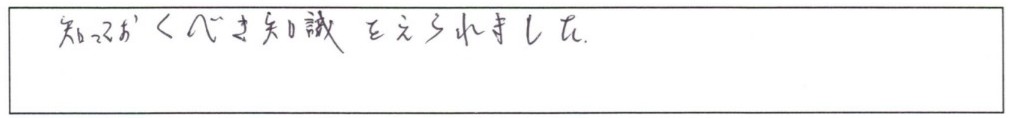 知っておくべき知識をえられました.